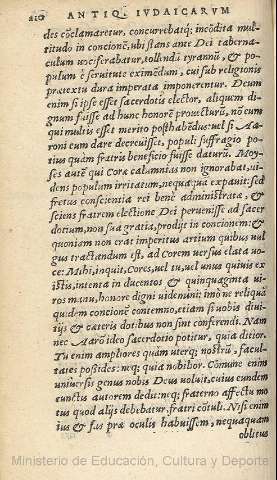 210 ANTIQ. IVDAICARVM
des cõclamaretur, concurrebatq́; incõdita mul-
titudo in concionẽ, ubi stans ante Dei taberna-
culum uociferabatur, tollendũ tyrannũ, & po-
pulum è seruitute eximẽdum, cui sub religionis
prætextu dura imperata imponerentur. Deum
enim si ipse esset sacerdotis elector, aliquem di-
gnum fuisse ad hunc honorẽ prouecturũ, nõ eum
qui multis esset merito posthabẽdus: uel si Aa-
roni eum dare decreuisset, populi suffragio po-
tius quàm fratris beneficio fuisse daturũ. Moy-
ses autẽ qui Coræ calumnias non ignorabat, ui-
dens populum irritatum, nequaquã expauit: sed
fretus conscientia rei benè administratæ, &
sciens fratrem electione Dei peruenisse ad sacer
dotium, non sua gratia, prodijt in concionem: &
quoniam non erat imperitus artium quibus uul
gus tractandum est, ad Corem uersus elata uo-
ce: Mihi, inquit, Cores, uel tu, uel unus quiuis ex
istis, intenta in ducentos & quinquaginta ui-
ros manu, honore digni uidenini: imò ne reliquã
quidem concionẽ contemno, etiam si uobis diui-
tijs & cæteris dotibus non sint conferendi. Nam
nec Aarõ ideo sacerdotio potitur, quia ditior.
Tu enim ampliores quàm uterq; nostrũ, facul-
tates possides: neq; quia nobilior. Cõmune enim
uniuersis genus nobis Deus uoluit, eiusdem
cunctis autorem dedit: neq; fraterno affectu mo
tus quod alijs debebatur, fratri cõtuli. Nisi enim
ius & fas præ oculis habuissem, nequaquam
oblitus
Ministerio de Educación, Cultura y Deporte